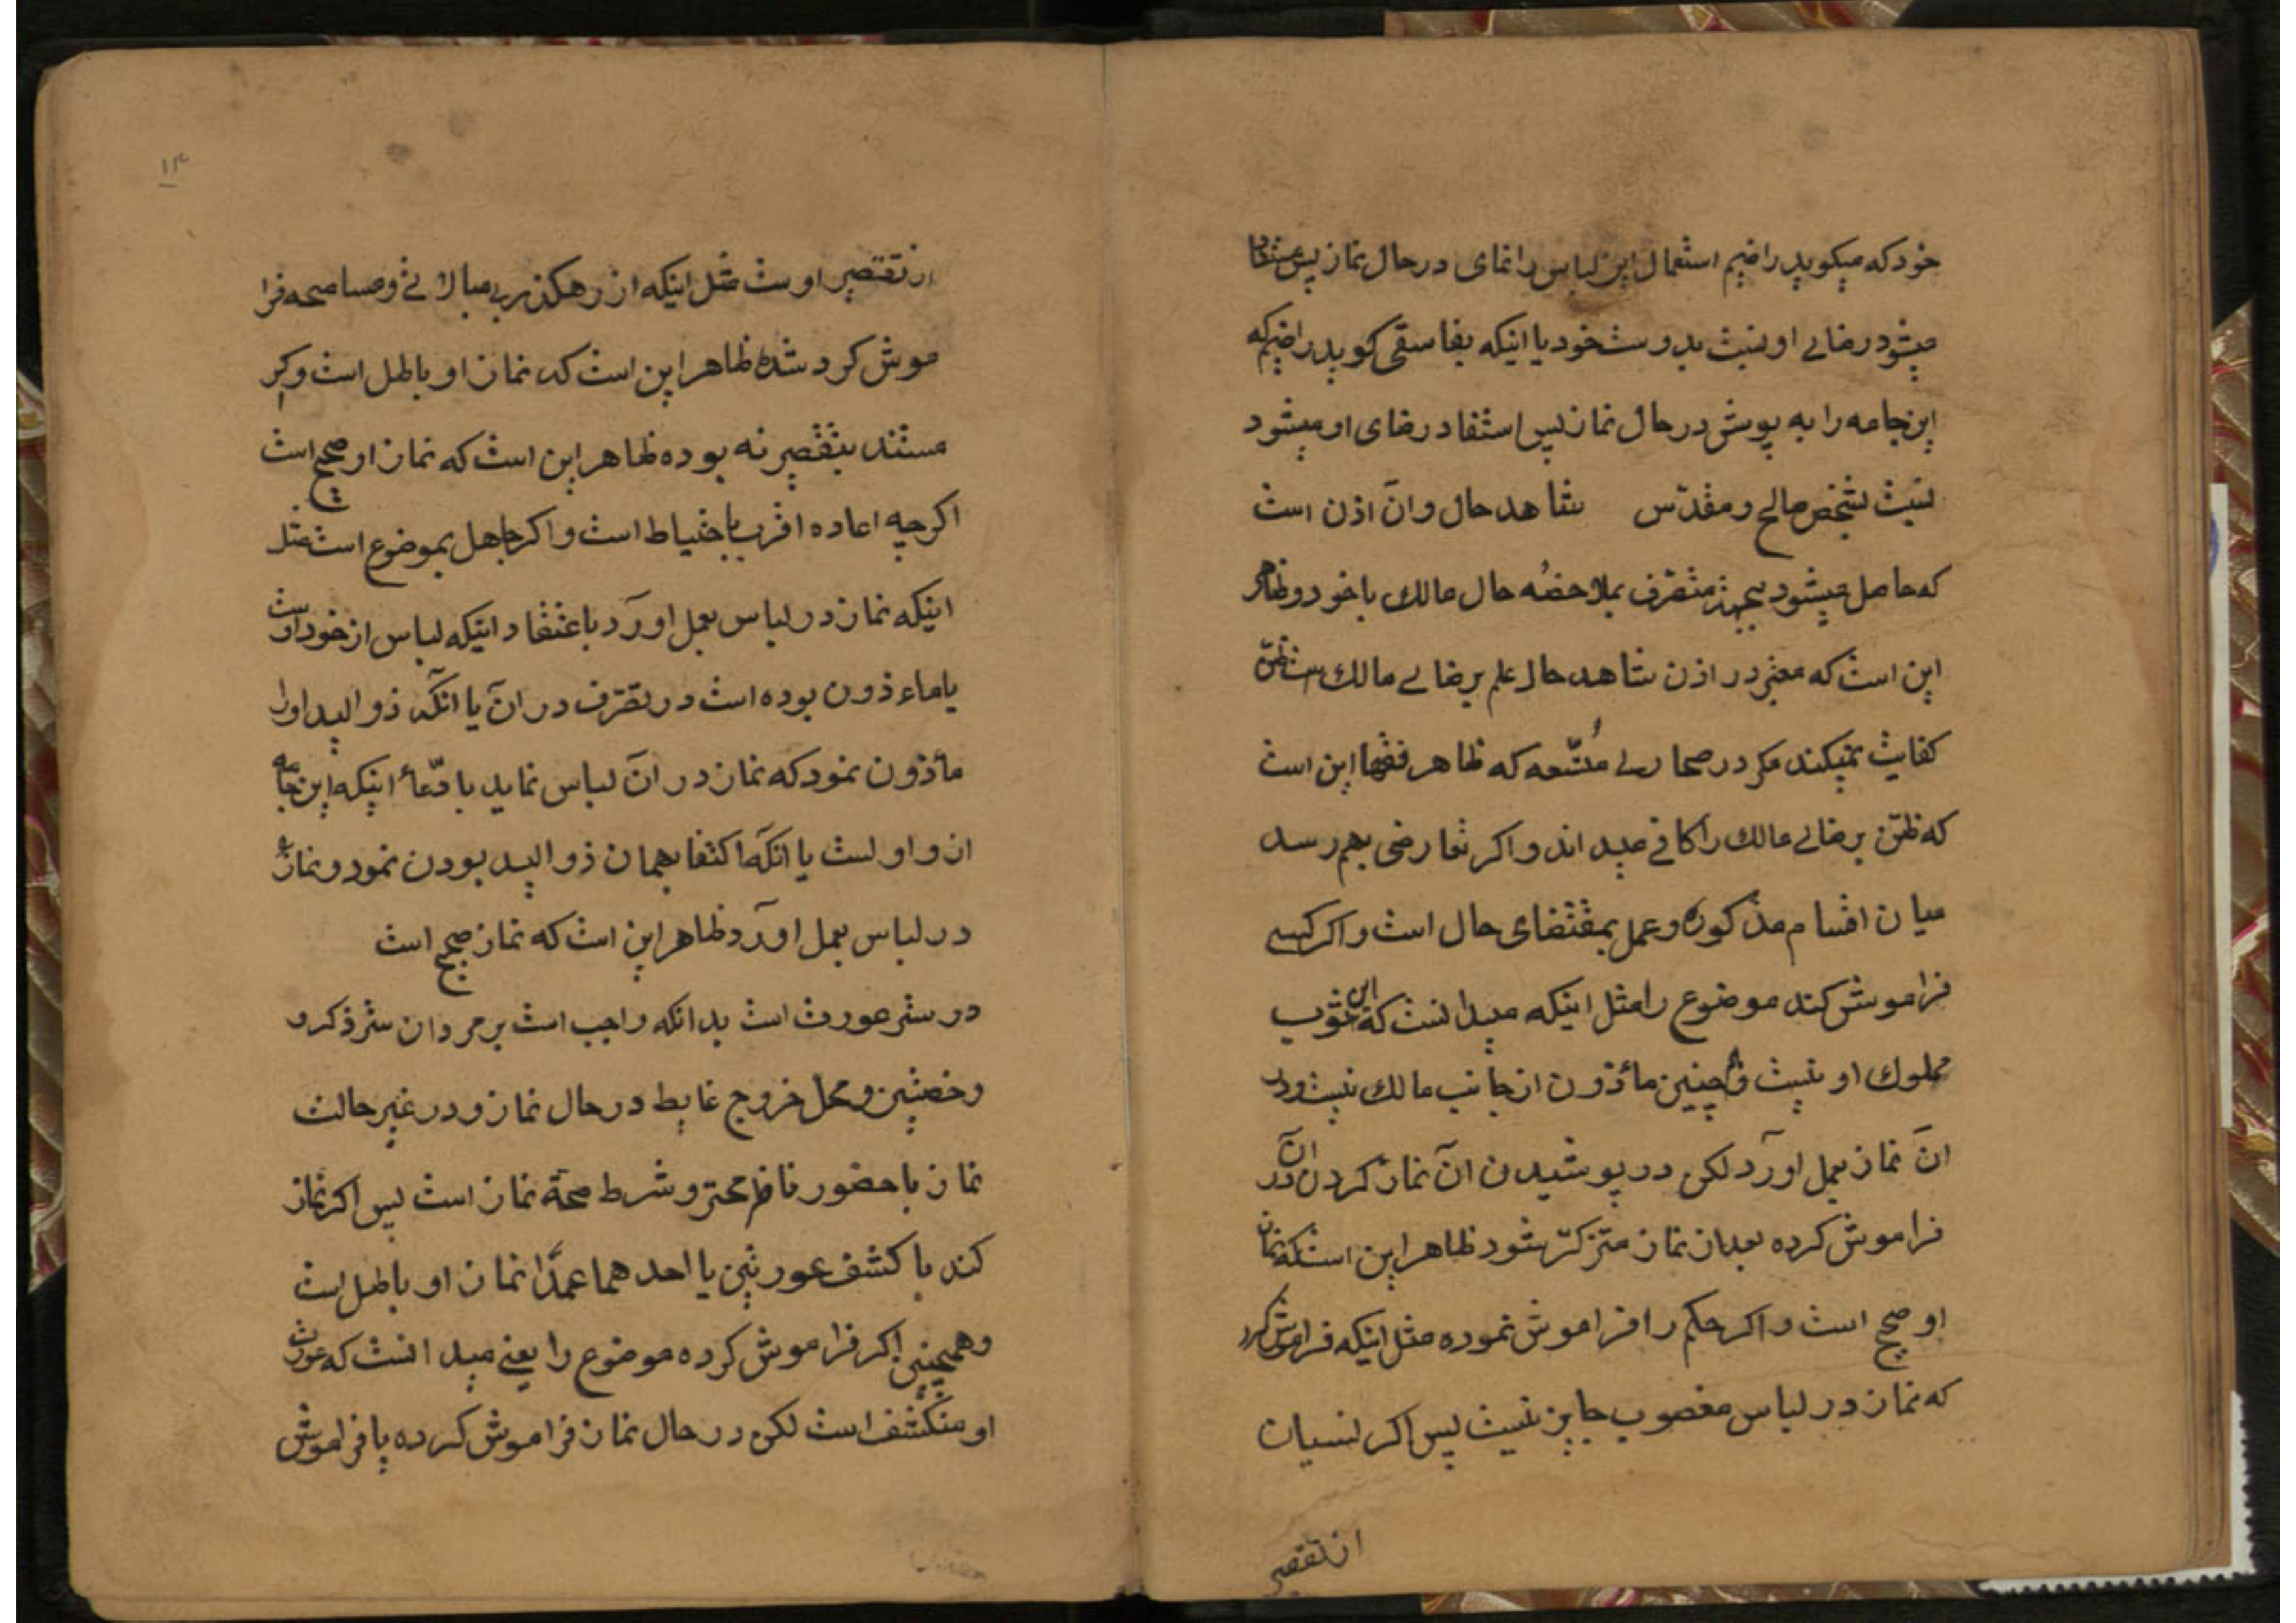 خود که میکوید راضیم استعمال این لباس را نمای در حال نماز پس مستفاد
میشود رضای او نسبت بدوست خود یا اینکه بفاسقی کوید راضیم که
این جامه را به پوش در حال نماز پس استفاد رضای او میشود
نسبت لشخص صالح و مقدّس شاهد حال و آن اذن است
که حاصل میشود بجهة متصرف بملاحضه حال مالك با خود و ظاهر
این است که معتبر در اذن شاهد حال علم برضای مالك است ظنّ
کفایت نمیکند مکر در صحاری متّسعه که ظاهر فقها این است
که ظنّ برضای مالك را کافی میداند و اکر تعارضی بهم رسد
میان اقسام مذکوره و عمل بمقتضای حال است و اکر کسی
فراموش کند موضوع را مثل اینکه میدانست که این ثوب
مملوك او نیست و همچنین مأذون از جانب مالك نیست و در
آن نماز بعمل آورد لکن در پوشیدن آن نماز کردن در آن
فراموش کرده بعد از نماز متذکّر شود ظاهر این است که نماز
او صحیح است و اکر حکم را فراموش نموده مثل اینکه فراموش کرد
که نماز در لباس مغصوب جایز نیست پس اکر نسیان
از تقصیر
۱۳
از تقصیر اوست مثل اینکه از رهکذر بی مبالاتی و مسامحه فرا
موش کرد شده ظاهر این است که نماز او باطل است و کر
مستند بتقصیر نه بوده ظاهر این است که نماز او صحیح است
اکرچه اعاده اقرب باحتیاط است و اکر جاهل بموضوع است مثل
اینکه نماز در لباس بعمل آورد باعتقاد اینکه لباس از خود اوست
یا ماءذون بوده است در تصرّف در آن یا آنکه ذو الید او را
مأذون نمود که نماز در آن لباس نماید بادّعاء اینکه این جامه
از و اوست یا آنکه اکتفا بهمان ذو الید بودن نمود و نماز
در لباس بعمل آورد ظاهر این است که نماز صحیح است
در ستر عورت است بدانکه واجب است بر مردان ستر ذکر و
و خصیتین و محل خروج غایط در حال نماز و در غیر حالت
نماز با حضور ناظر محترم و شرط صحة نماز است پس اکر نماز
کند با کشف عورتین یا احدهما عمدًا نماز او باطل است
و همچنین اکر فراموش کرده موضوع را یعنی میدانست که عورت
او منکشف است لکن در حال نماز فراموش کرده یا فراموش